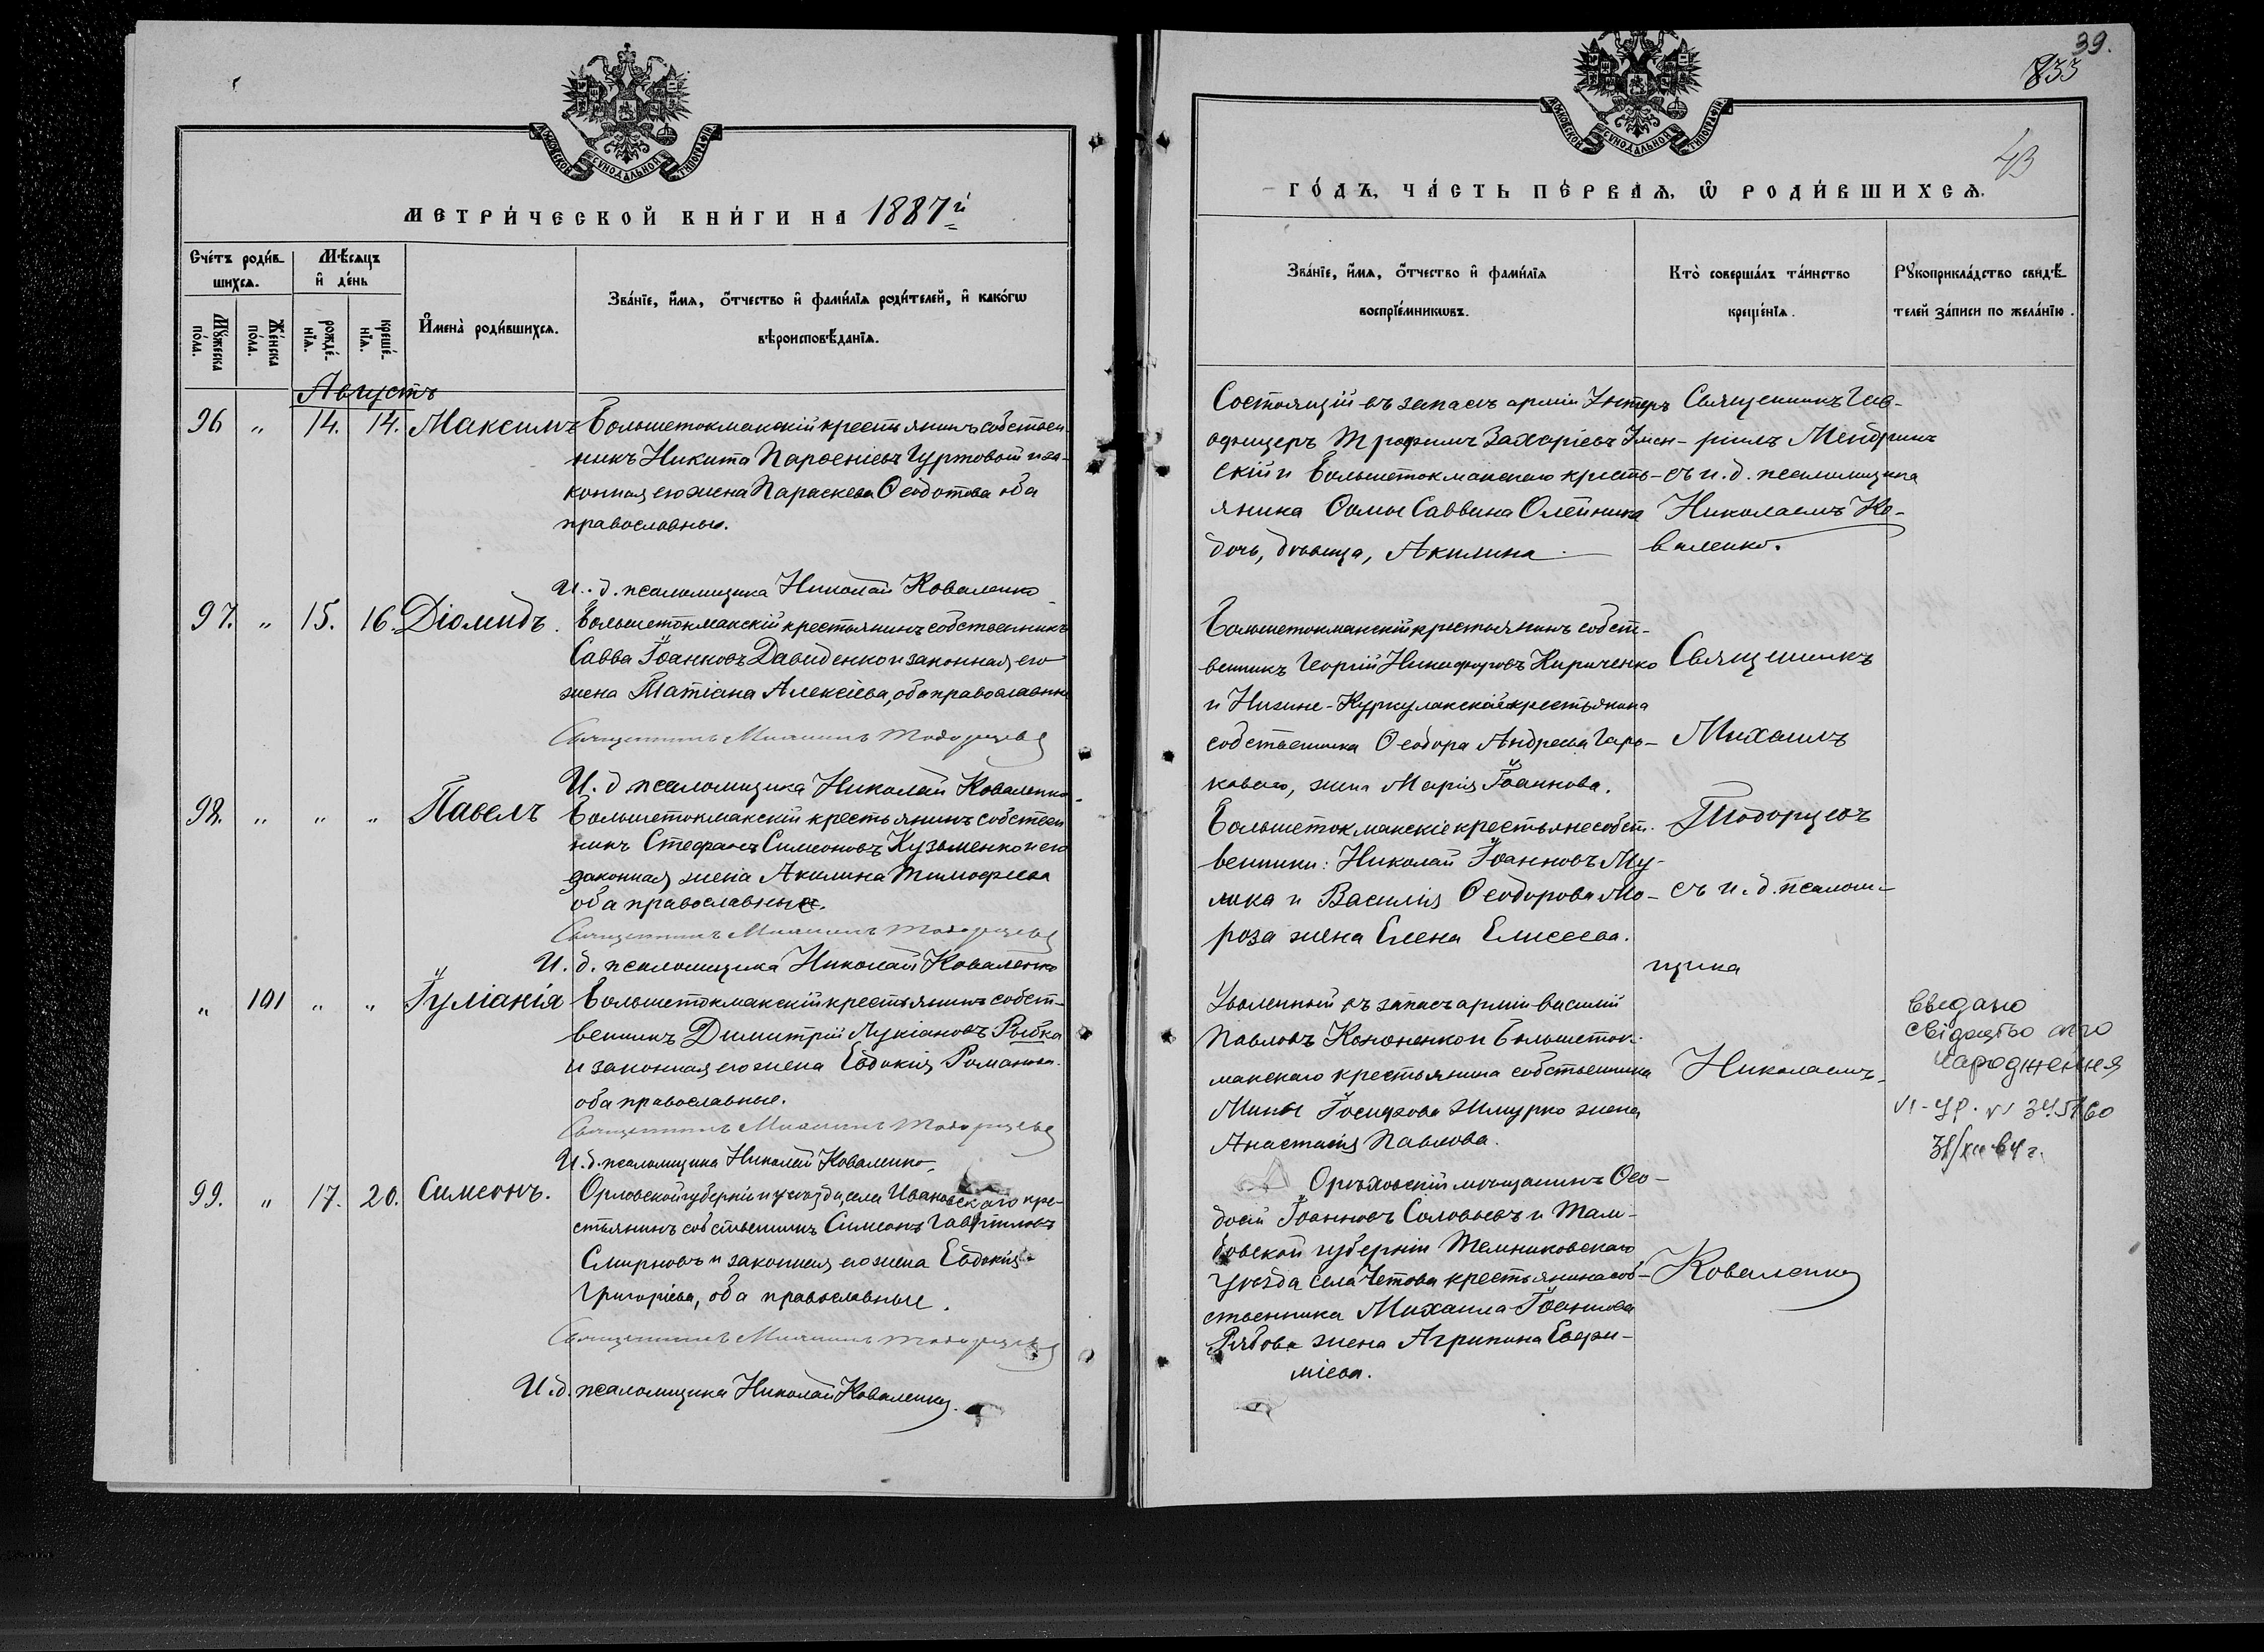 МОСКОВСКОЙ СѴНОДАЛЬНОЙ ТИПОГРАФІИ
МЕТРИ́ЧЕСКОЙ КНИ́ГИ НА 1887й
Сче́тъ роди́в-
шихсѧ.
Мꙋ́жеска
по́ла.
Же́нска
по́ла.
Мѣ́сѧцъ
и҆ де́нь
рожде́-
нїѧ.
креще́-
нїѧ.
И҆мена̀ роди́вшихсѧ.
Зва́нїе, и҆́мѧ, ѻ҆́тчество и҆ фами́лїѧ роди́телей, и҆ како́гѡ
вѣроисповѣ́данїѧ.
Августъ
96 " 14. 14. Максимъ
Большетокмакскій крестьянинъ собствен
никъ Никита Парѳеніевъ Гуртовый и за-
конная его жена Параскева Ѳеодотова оба
православные.
И. д. псаломщика Николай Коваленко
97. " 15. 16. Діомидъ.
Большетокмакскій крестьянинъ собственникъ
Савва Іоанновъ Давиденко и законная его
жена Татіана Алексіева, оба православные
Священникъ Михаилъ Тодорцевъ
И. д. псаломщика Николай Коваленко
98. " " " Павелъ
Большетокмакскій крестьянинъ собствен
никъ Стефанъ Симеоновъ Кузьменко и его
законная жена Акилина Тимофиева
оба православные.
Священникъ Михаилъ Тодорцевъ
И. д. псаломщика Николай Коваленко
" 101 " " Іуліанія
Большетокмакскій крестьянинъ собст-
венникъ Димитрій Лукіановъ Рыбка
и законная его жена Евдокія Романова
оба православные.
Священникъ Михаилъ Тодорцевъ
И. д. псаломщика Николай Коваленко
99. " 17. 20. Симеонъ.
Орловской губерніи и уѣзда, села Ивановскаго кре-
стьянинъ собственникъ Симеонъ Гавріиловъ
Смирновъ и законная его жена Евдокія
Григоріева, оба православные.
Священникъ Михаилъ Тодорцевъ
И. д. псаломщика Николай Коваленко.
39.
833
43
МОСКОВСКОЙ СѴНОДАЛЬНОЙ ТИПОГРАФІИ
ГО́ДЪ, ЧА́СТЬ ПЕ́РВАѦ, Ѡ҆ РОДИ́ВШИХСѦ.
Зва́нїе, и҆́мѧ, ѻ҆́тчество и҆ фами́лїѧ
воспрїе́мникѡвъ.
Кто̀ соверша́лъ та́инство
креще́нїѧ.
Рꙋкоприкла́дство свидѣ́-
телей за́писи по жела́нїю.
Состоящій въ запасѣ арміи Унтеръ
офицеръ Трофимъ Захаріевъ
скій и Большетокмакскаго кресть-
янина Ѳомы Саввина Олейника
дочь, дѣвица, Акилина
Священникъ Гав-
ріилъ
съ и. д. псаломщика
Николаемъ Ко-
валенко.
Большетокмакскій крестьянинъ собст-
венникъ Георгій Никифоровъ Кириченко
и Нижне-Куркулакскаго крестьянина
собственника Ѳеодора Андреева Гарь-
каваго, жена Марія Іоаннова.
Большетокмакскіе крестьяне собст-
венники: Николай Іоанновъ Му-
лика и Василія Ѳеодорова Мо-
роза жена Елена Елисеева.
Уволенный въ запасъ арміи Василій
Павловъ Кононенко и Большеток-
макскаго крестьянина собственника
Мины Іосифова Шмурко жена
Анастасія Павлова.
Орѣховскій мѣщанинъ Ѳео-
досій Іоанновъ Соловьевъ и Там-
бовской губерніи Темниковскаго
уѣзда села Четова крестьянина соб-
ственника Михаила Іоаннова
Рябова жена Агрипина Евфи-
міева.
Священникъ
Михаилъ
Тодорцевъ
съ и. д. псалом-
щика
Николаемъ
Коваленко
Видано
свідоцтво про
народження